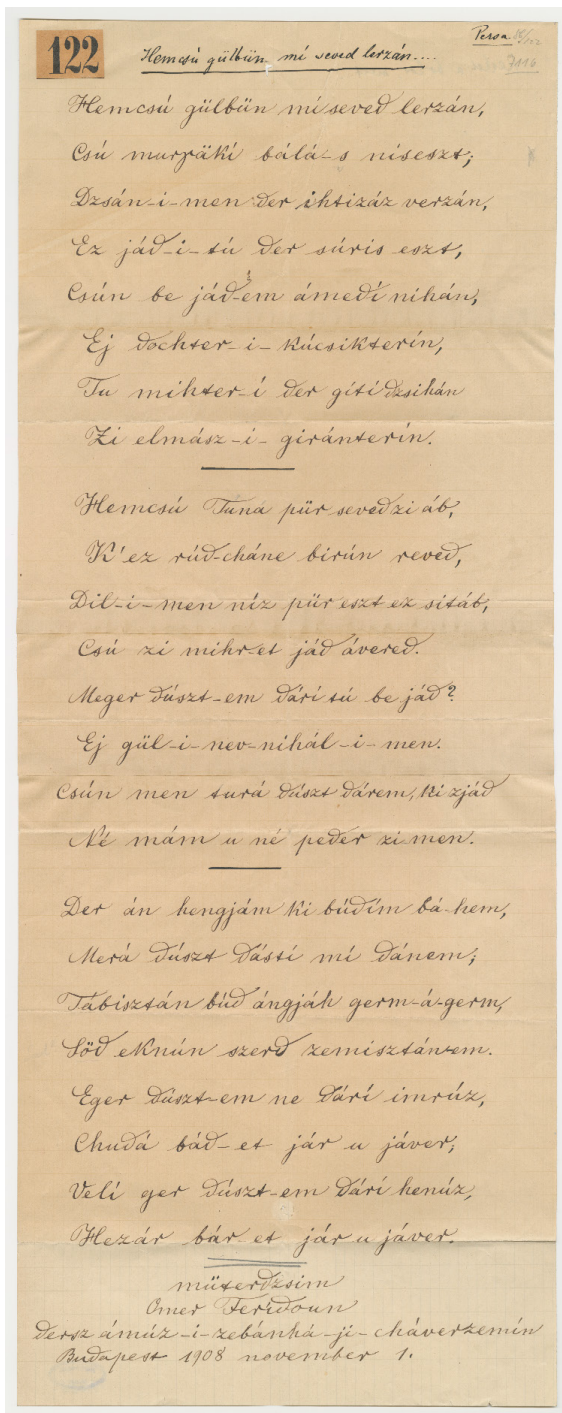 122
Persa
7116
Hemcsú gülbün mí seved lerzán....
Hemcsú gülbün mí seved lerzán,
Csú murγäkí bálá-s níseszt;
Dzsán-i-men der ihtizáz verzán,
Ez jád-i-tú der súris eszt,
Csún be jád-em ámedí nihán,
Ej dochter-i-kúcsikterín,
Tu mihter-í der gítí dzsihán
Zi elmász-i-giránterín.
Hemcsú Tuná pür seved zi áb,
K'ez rúd-cháne bírún reved,
Dil-i-men níz pür eszt ez sitáb,
Csú zi mihr-et jád ávered.
Meger dúszt-em dárí tú be jád?
Ej gül-i-nev-nihál-i-men.
Csún men turá dúszt dárem, ki zjád
Né mám u né peder zi men.
Der án hengjám ki búdím bá-hem,
Merá dúszt dástí mí dánem;
Tábisztán búd ángjáh germ-á-germ,
Söd eknún szerd zemisztán-em.
Eger dúszt-em ne dárí imrúz,
Chudá bád-et jár u jáver;
Velí ger dúszt-em dárí henúz,
Hezár bár et jár u jáver.
müterdzsim
Omer Feridoun
dersz ámúz-i-zebánhá-ji-cháverzemín
Budapest 1908 november 1.